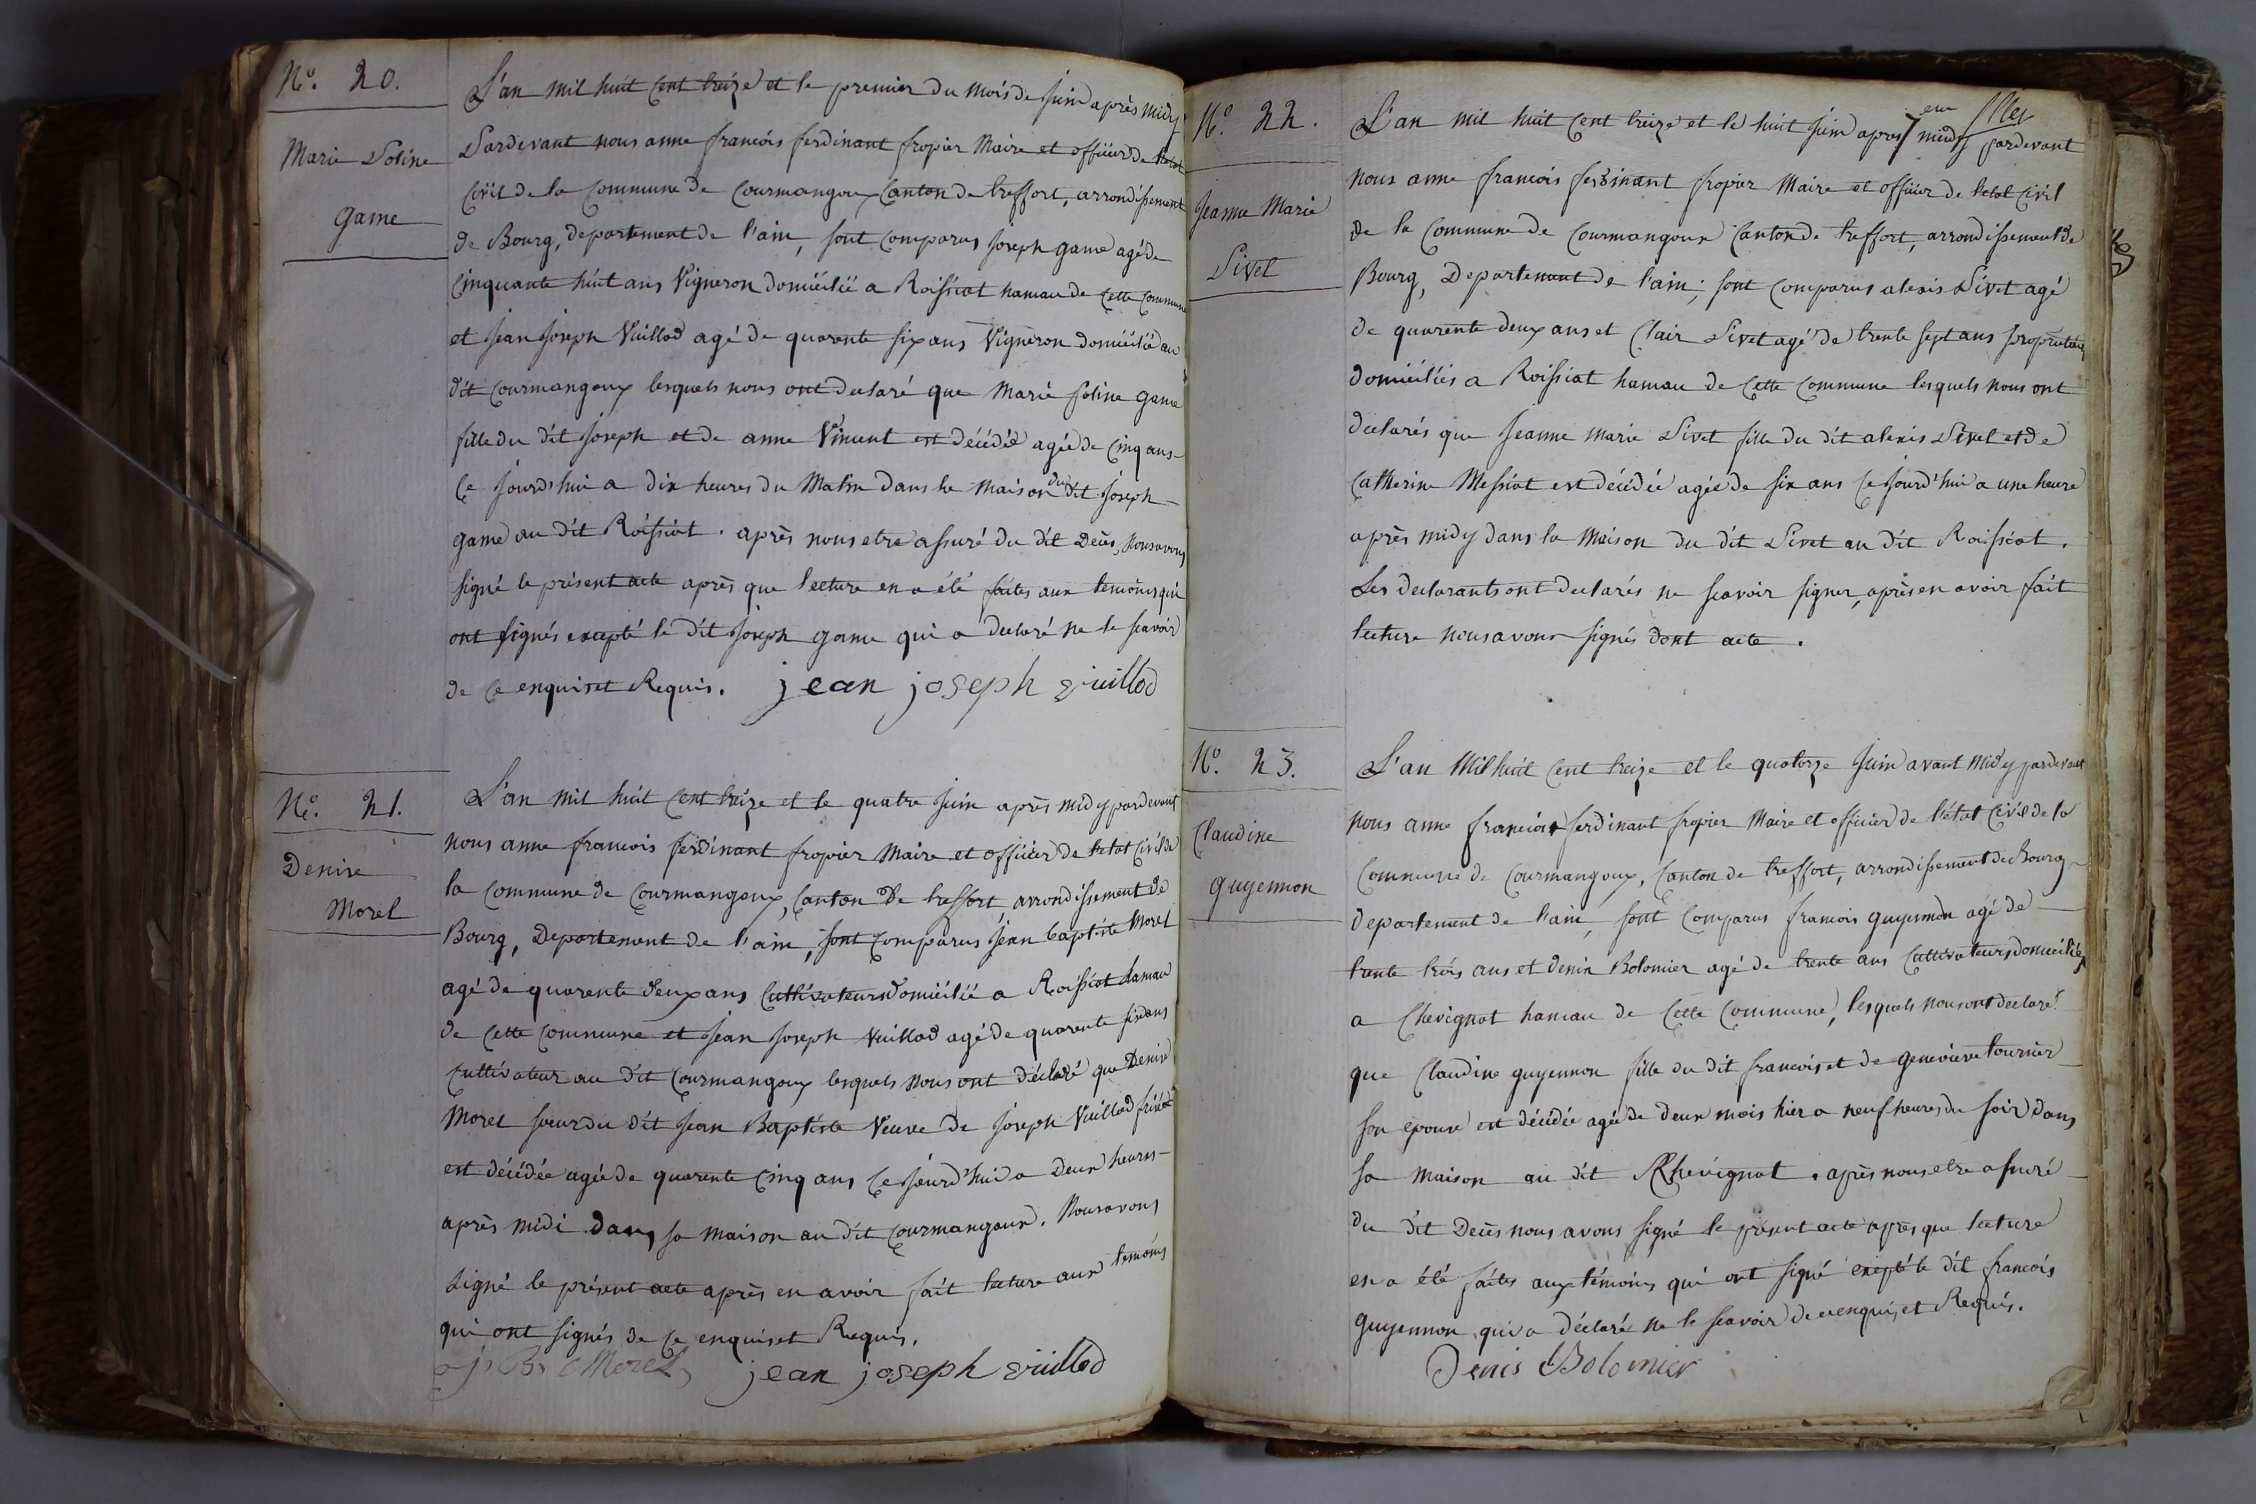 N.º 20.
Marie Poline
Game
L'an mil huit cent treize et le premier du mois de juin après midy
Pardevant nous anne francois ferdinant fropier Maire et officier de l'etat
Civil de la Commune de Courmangoux Canton de treffort, arrondissement
de Bourg, departement de l'ain, sont comparus joseph game agé de
Cinquante huit ans Vigneron domicilié a Roissiat hamau de cette commune
et jean joseph Vuillod agé de quarente six ans Vigneron domicilié au
dit Courmangoux lesquels nous ont declaré que Marie poline game
fille du dit joseph et de anne Vincent est décédé agée de cinq ans
Ce jourd'hui a dix heures du Matin dans la Maison du dit joseph
game au dit Roissiat. après nous etre assuré du dit Decès, Nous avons
signé le présent acte après que lecture en a été faites aux temoins qui
ont signés excepté le dit joseph game qui a declaré ne le scavoir
de ce enquis et Requis. jean joseph vuillod
N.º 21.
Denise
Morel
L'an mil huit cent treize et le quatre juin après midy pardevant
nous anne francois ferdinant fropier Maire et officier de l'etat Civil de
la Commune de Courmangoux, Canton de treffort arrondissement de
Bourg, Departement de l'ain, sont comparus jean baptiste Morel
agé de quarente deux ans Cultivateur domicilié a Roissiat hamau
de cette commune et jean joseph Vuillod agé de quarente six ans
Cultivateur au dit Courmangoux lesquels nous ont déclaré que Denise
Morel soeur du dit jean Baptiste Veuve de joseph Vuillod
est décédée agée de quarente cinq ans ce jourd'hui a Deux heures
après midi dans sa maison au dit Courmangoux. Nous avons
signé le présent acte après en avoir fait lecture aux temoins
qui ont signés de ce enquis et Requis.
j B Morel jean joseph vuillod
N.º 22.
Jeanne Marie
Pivet
L'an mil huit cent treize et le huit juin apres midy pardevant
nous anne francois ferdinant fropier Maire et officier de l'etat Civil
de la Commune de Courmangoux Canton de treffort, arrondissement de
Bourg, Departement de l'ain; sont comparus alexis Pivet agé
de quarente deux ans et Clair Pivet agé de trente sept ans propriétaires
domiciliés a Roissiat hamau de cette commune lesquels nous ont
declarés que Jeanne Marie Pivet fille du dit alexis Pivet et de
Catherine Messiat est décédée agée de six ans ce jourd'hui a une heure
après midy dans la Maison du dit Pivet au dit Roissiat.
Les declarants ont declarés ne scavoir signer, après en avoir fait
lecture nous avons signés dont acte.
N.º 23.
Claudine
guyennon
L'an Mil huit cent treize et le quatorze juin avant Midy pardevant
nous anne francois ferdinant fropier Maire et officier de l'état Civil de la
Commune de Courmangoux, Canton de treffort, arrondissement de Bourg
departement de l'ain, sont comparus francois guyennon agé de
trente trois ans et denis Bolomier agé de trente ans Cultivateurs domiciliés
a Chevignat hamau de cette commune, lesquels nous ont declaré
que Claudine guyennon fille du dit francois et de genevieve tournier
son epouse est décédée agée de deux mois hier a neuf heures du soir dans
sa maison au dit Chevignat. après nous etre assuré
du dit Decès nous avons signé le present acte après que lecture
en a été faites aux témoins qui ont signé excepté le dit francois
guyennon qui a déclaré ne le scavoir de ce enquis et Requis.
Denis Bolomier